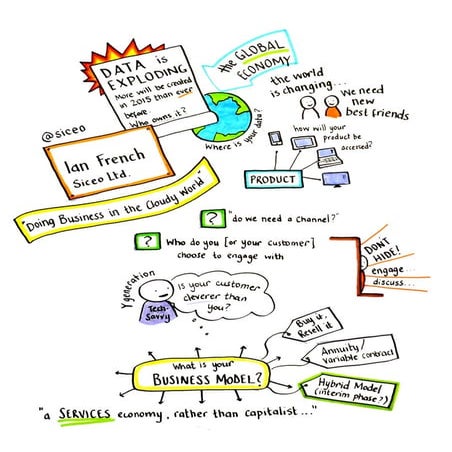 DATA is
EXPLODING
More will be created
in 2015 than ever
before.
Who owns it?
the GLOBAL
ECONOMY
the world
is changing...
We need
new
best friends
@siceo
Ian French
Siceo Ltd.
Where is your data?
how will your
product be
accessed?
PRODUCT
"Doing Business in the Cloudy World"
? "do we need a channel?"
? Who do you [or your customer]
choose to engage with
DON'T
HIDE!
engage...
discuss...
Y generation
Tech-
Savvy
Is your customer
cleverer than
you?
Buy it,
Resell it
Annuity/
variable contract
What is your
BUSINESS MODEL?
Hybrid Model
(interim phase?)
"a SERVICES economy, rather than capitalist..."